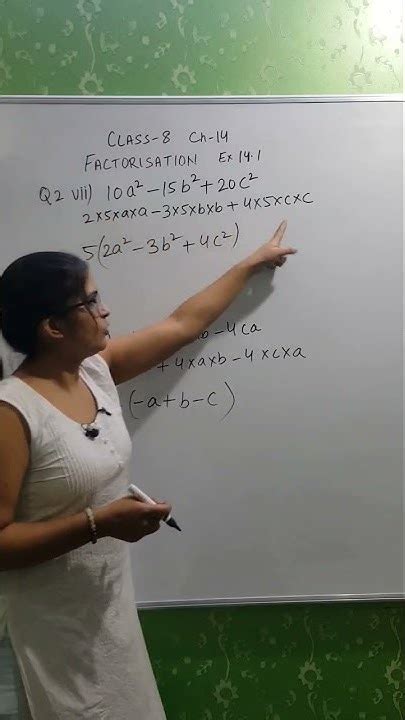 CLASS-8 Ch-14
FACTORISATION Ex 14.1
Q2 vii) 10a² - 15b² + 20c²
2×5×a×a - 3×5×b×b + 4×5×c×c
5(2a² - 3b² + 4c²)
- 4ca
+ 4×a×b - 4×c×a
(-a+b-c)